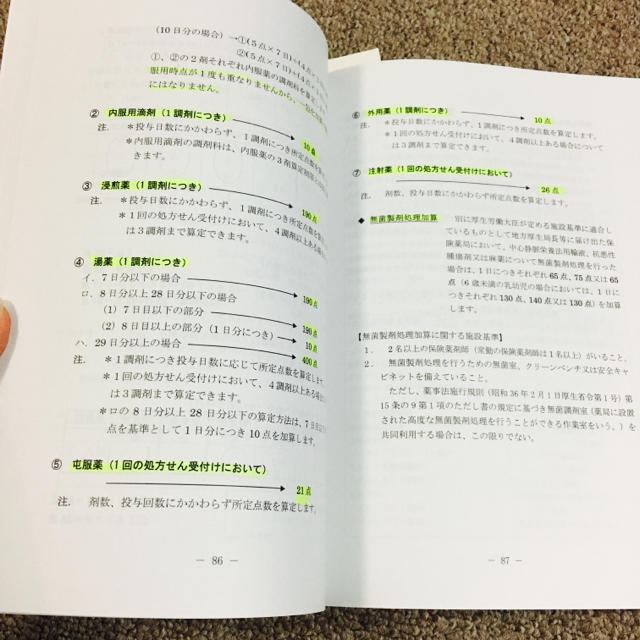 (10日分の場合) →①(5点×7日)+(4点×
②(5点×7日)+(4点
①、②の2剤それぞれ内服薬の調剤料を算定
服用時点が1度も重なりませんから、一包化
にはなりません。
② 内服用滴剤(1調剤につき)
10点
注. *投与日数にかかわらず、1調剤につき所定点数を算
*内服用滴剤の調剤料は、内服薬の3剤算定制限
きます。
③ 浸煎薬(1調剤につき)
190点
注. *投与日数にかかわらず、1調剤につき所定点数を算定
*1回の処方せん受付けにおいて、4調剤以上ある場
は3調剤まで算定できます。
④ 湯薬(1調剤につき)
イ.7日分以下の場合
190点
ロ.8日分以上28日分以下の場合
(1) 7日目以下の部分
190点
(2) 8日目以上の部分(1日分につき)
10点
ハ.29日分以上の場合
400点
注. *1調剤につき投与日数に応じて所定点数を算定
*1回の処方せん受付けにおいて、4調剤以上ある場
は3調剤まで算定できます。
*ロの8日分以上28日分以下の算定方法は、7日
点を基準として1日分につき10点を加算します。
⑤ 屯服薬(1回の処方せん受付けにおいて)
21点
注. 剤数、投与回数にかかわらず所定点数を算定します。
― 86 ―
⑥ 外用薬(1調剤につき)
10点
注. *投与日数にかかわらず、1調剤につき所定点数を算定します。
*1回の処方せん受付けにおいて、4調剤以上ある場合について
は3調剤まで算定できます。
⑦ 注射薬(1回の処方せん受付けにおいて)
26点
注. 剤数、投与日数にかかわらず所定点数を算定します。
◆ 無菌製剤処理加算 別に厚生労働大臣が定める施設基準に適合し
ているものとして地方厚生局長等に届け出た保
険薬局において、中心静脈栄養法用輸液、抗悪性
腫瘍剤又は麻薬について無菌製剤処理を行った
場合は、1日につきそれぞれ65点、75点又は65
点(6歳未満の乳幼児の場合においては、1日に
つきそれぞれ130点、140点又は130点)を加算
します。
【無菌製剤処理加算に関する施設基準】
1. 2名以上の保険薬剤師(常勤の保険薬剤師は1名以上)がいること。
2. 無菌製剤処理を行うための無菌室、クリーンベンチ又は安全キャ
ビネットを備えていること。
ただし、薬事法施行規則(昭和36年2月1日厚生省令第1号)第
15条の9第1項のただし書の規定に基づき無菌調剤室(薬局に設置
された高度な無菌製剤処理を行うことができる作業室をいう。)を
共同利用する場合は、この限りでない。
― 87 ―